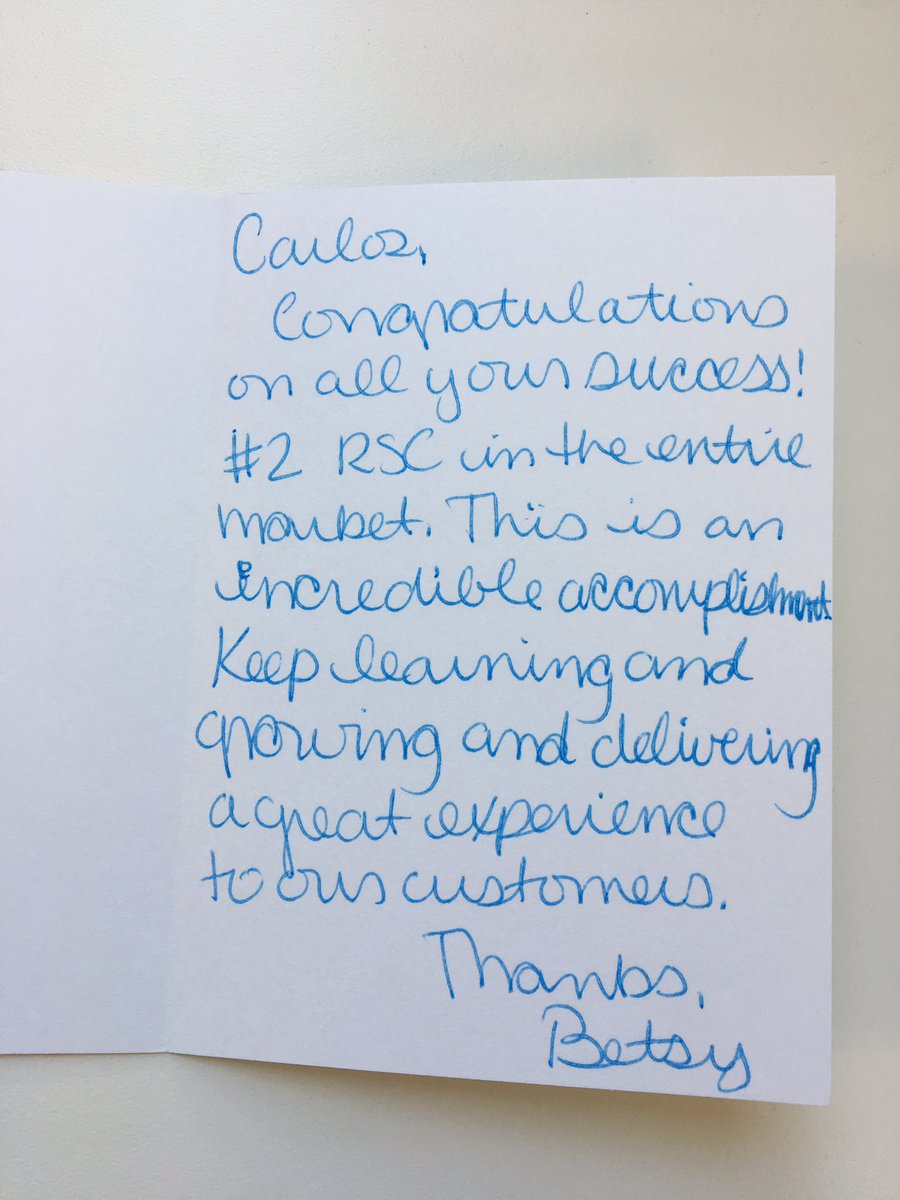 Carlos,
Congratulations
on all your success!
#2 RSC in the entire
market. This is an
incredible accomplishment
Keep learning and
growing and delivering
a great experience
to our customers.
Thanks,
Betsy